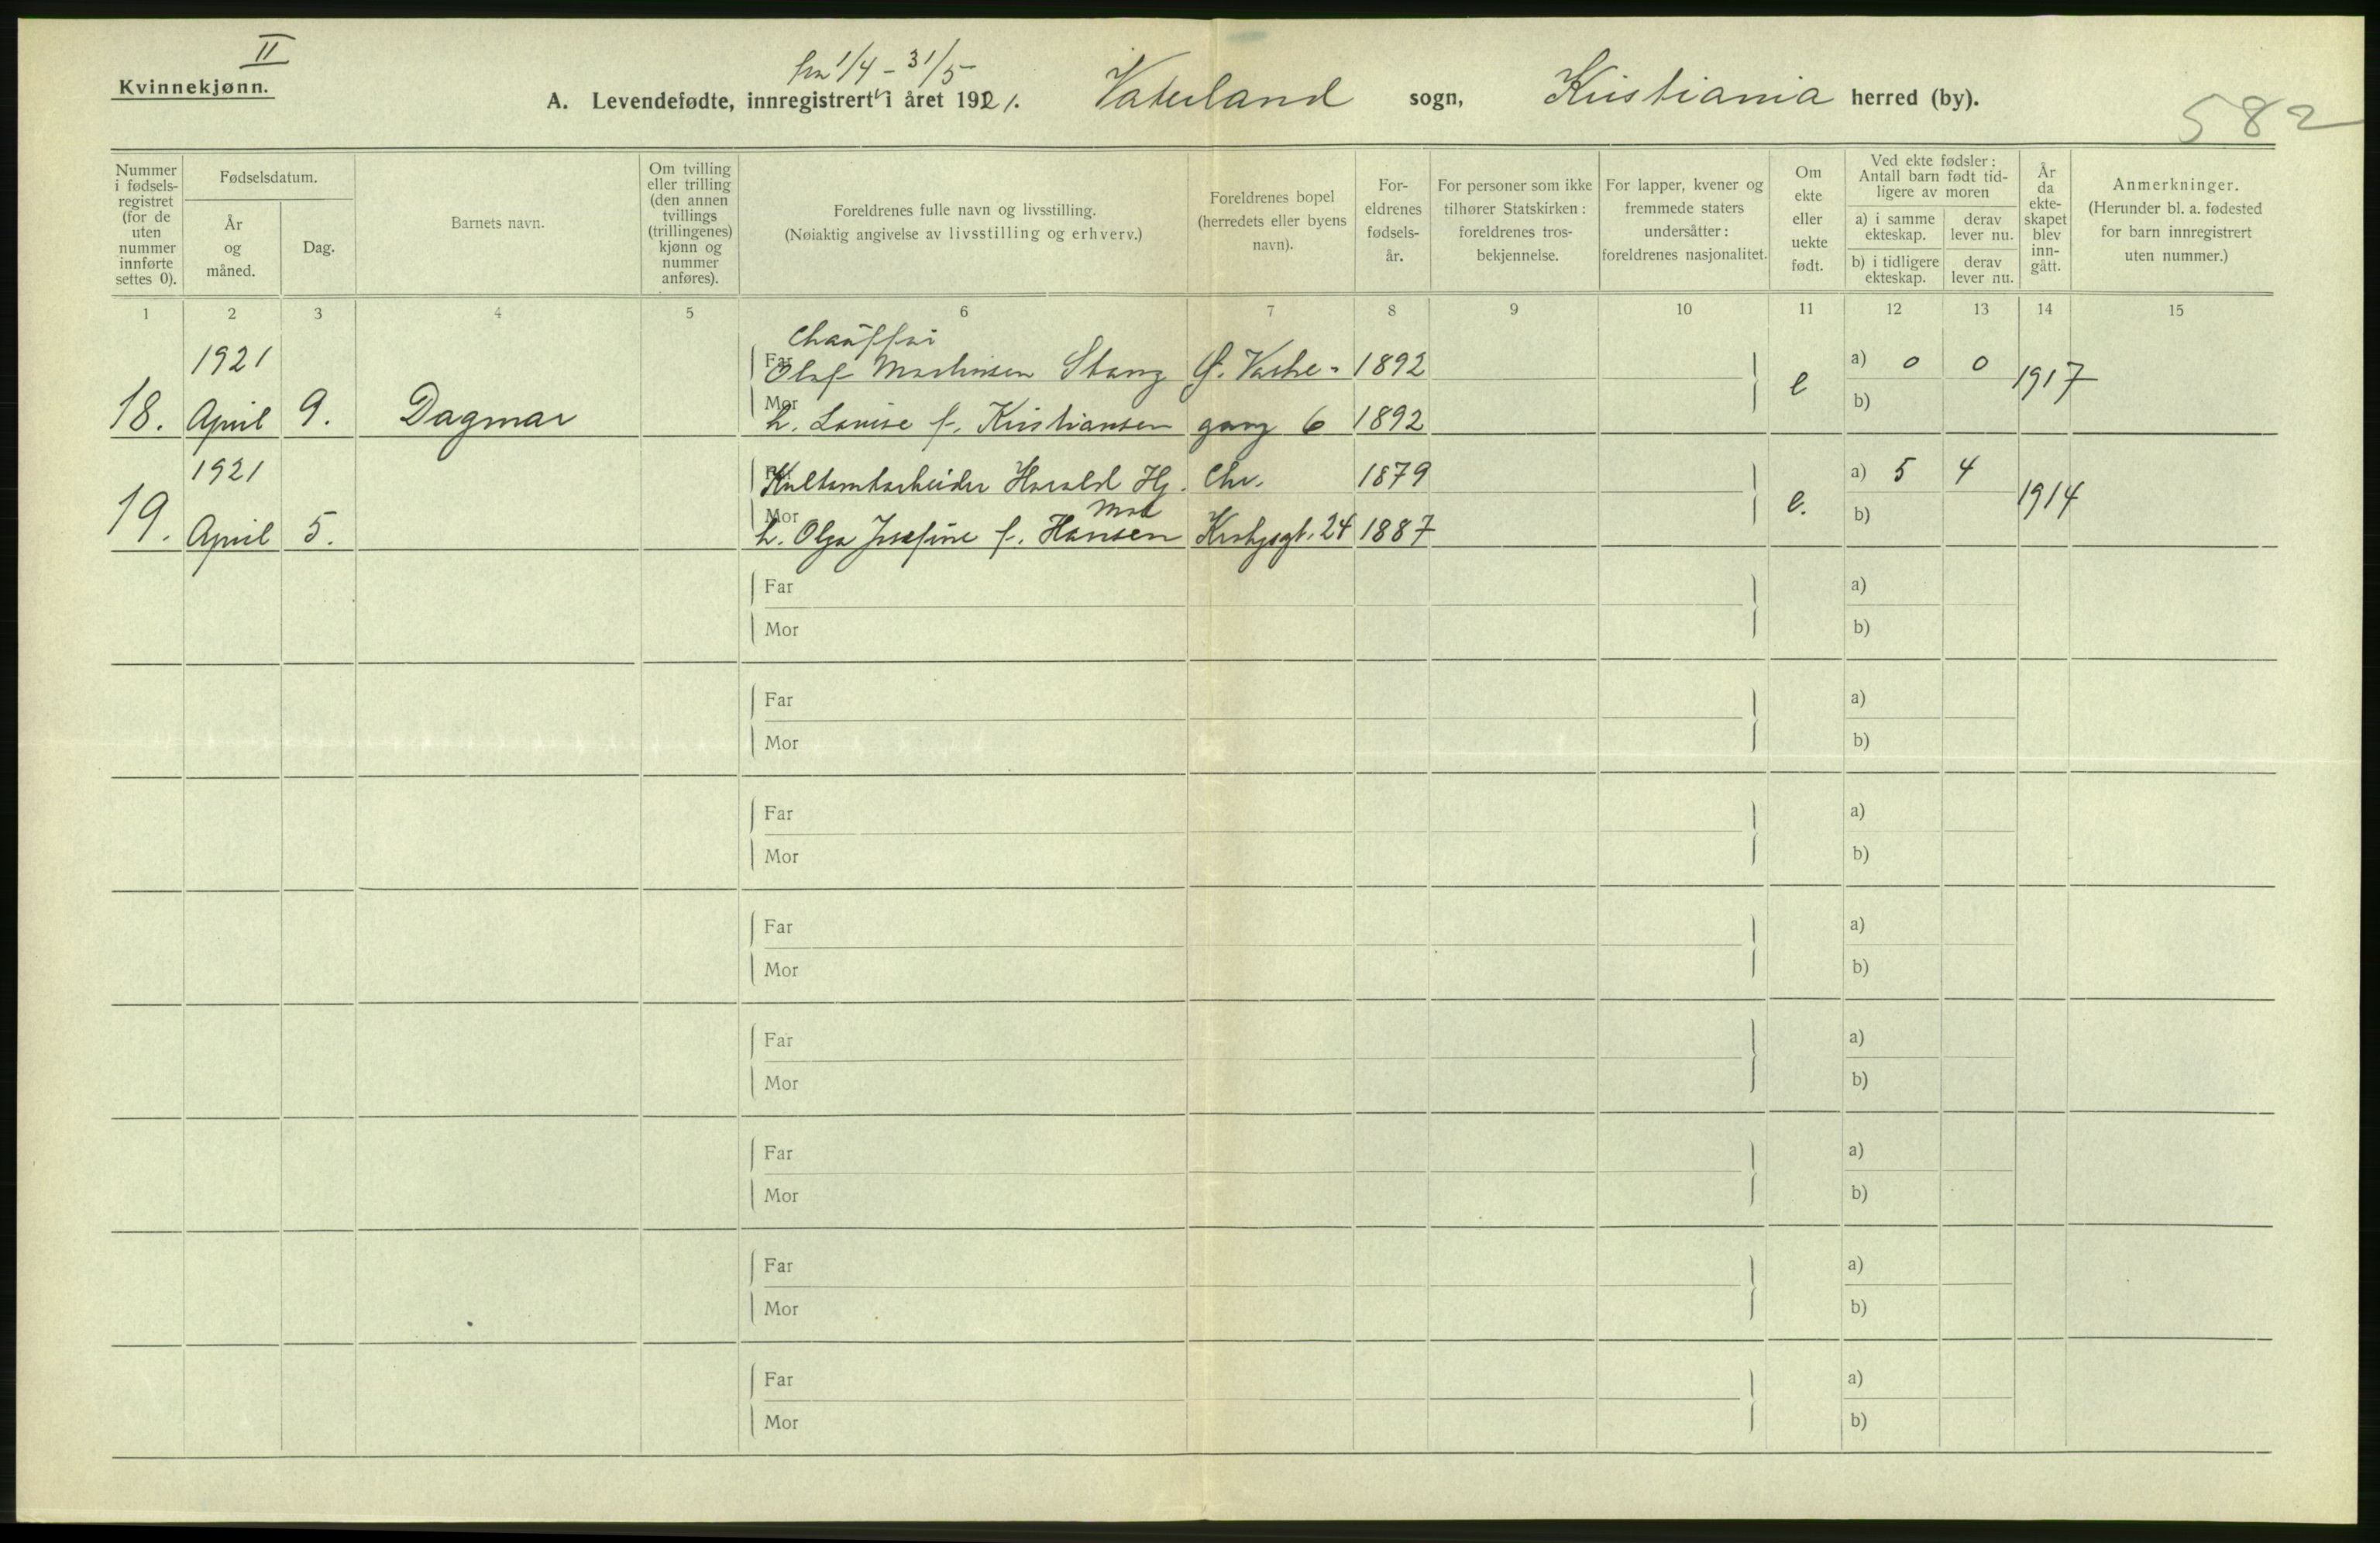 II
Kvinnekjønn.
fra 1/4 - 31/5
A. Levendefødte, innregistrert i året 1921. Vaterland sogn, Kristiania herred (by).
582
Nummer i fødsels-registret (for de uten nummer innførte settes 0).
Fødselsdatum.
År og måned.
Dag.
Barnets navn.
Om tvilling eller trilling (den annen tvillings (trillingenes) kjønn og nummer anføres).
Foreldrenes fulle navn og livsstilling.
(Nøiaktig angivelse av livsstilling og erhverv.)
Foreldrenes bopel (herredets eller byens navn).
For-eldrenes fødsels-år.
For personer som ikke tilhører Statskirken: foreldrenes tros-bekjennelse.
For lapper, kvener og fremmede staters undersåtter: foreldrenes nasjonalitet.
Om ekte eller uekte født.
Ved ekte fødsler: Antall barn født tid-ligere av moren
a) i samme ekteskap.
derav lever nu.
b) i tidligere ekteskap.
derav lever nu.
År da ekte-skapet blev inn-gått.
Anmerkninger.
(Herunder bl. a. fødested for barn innregistrert uten nummer.)
1 2 3 4 5 6 7 8 9 10 11 12 13 14 15
Chauffør
1921 Far Olaf Martinsen Stang 1892 a) 0 0
18. April 9. Dagmar Mor h. Lovise f. Kristiansen gang 6 1892 e b) 1917
1921 Harald Hj. Chr. 1879 a) 5 4
Moe
19. April 5. Mor h. Olga Josefine f. Hansen 24 1887 e. b) 1914
Far a)
Mor b)
Far a)
Mor b)
Far a)
Mor b)
Far a)
Mor b)
Far a)
Mor b)
Far a)
Mor b)
Far a)
Mor b)
Far a)
Mor b)